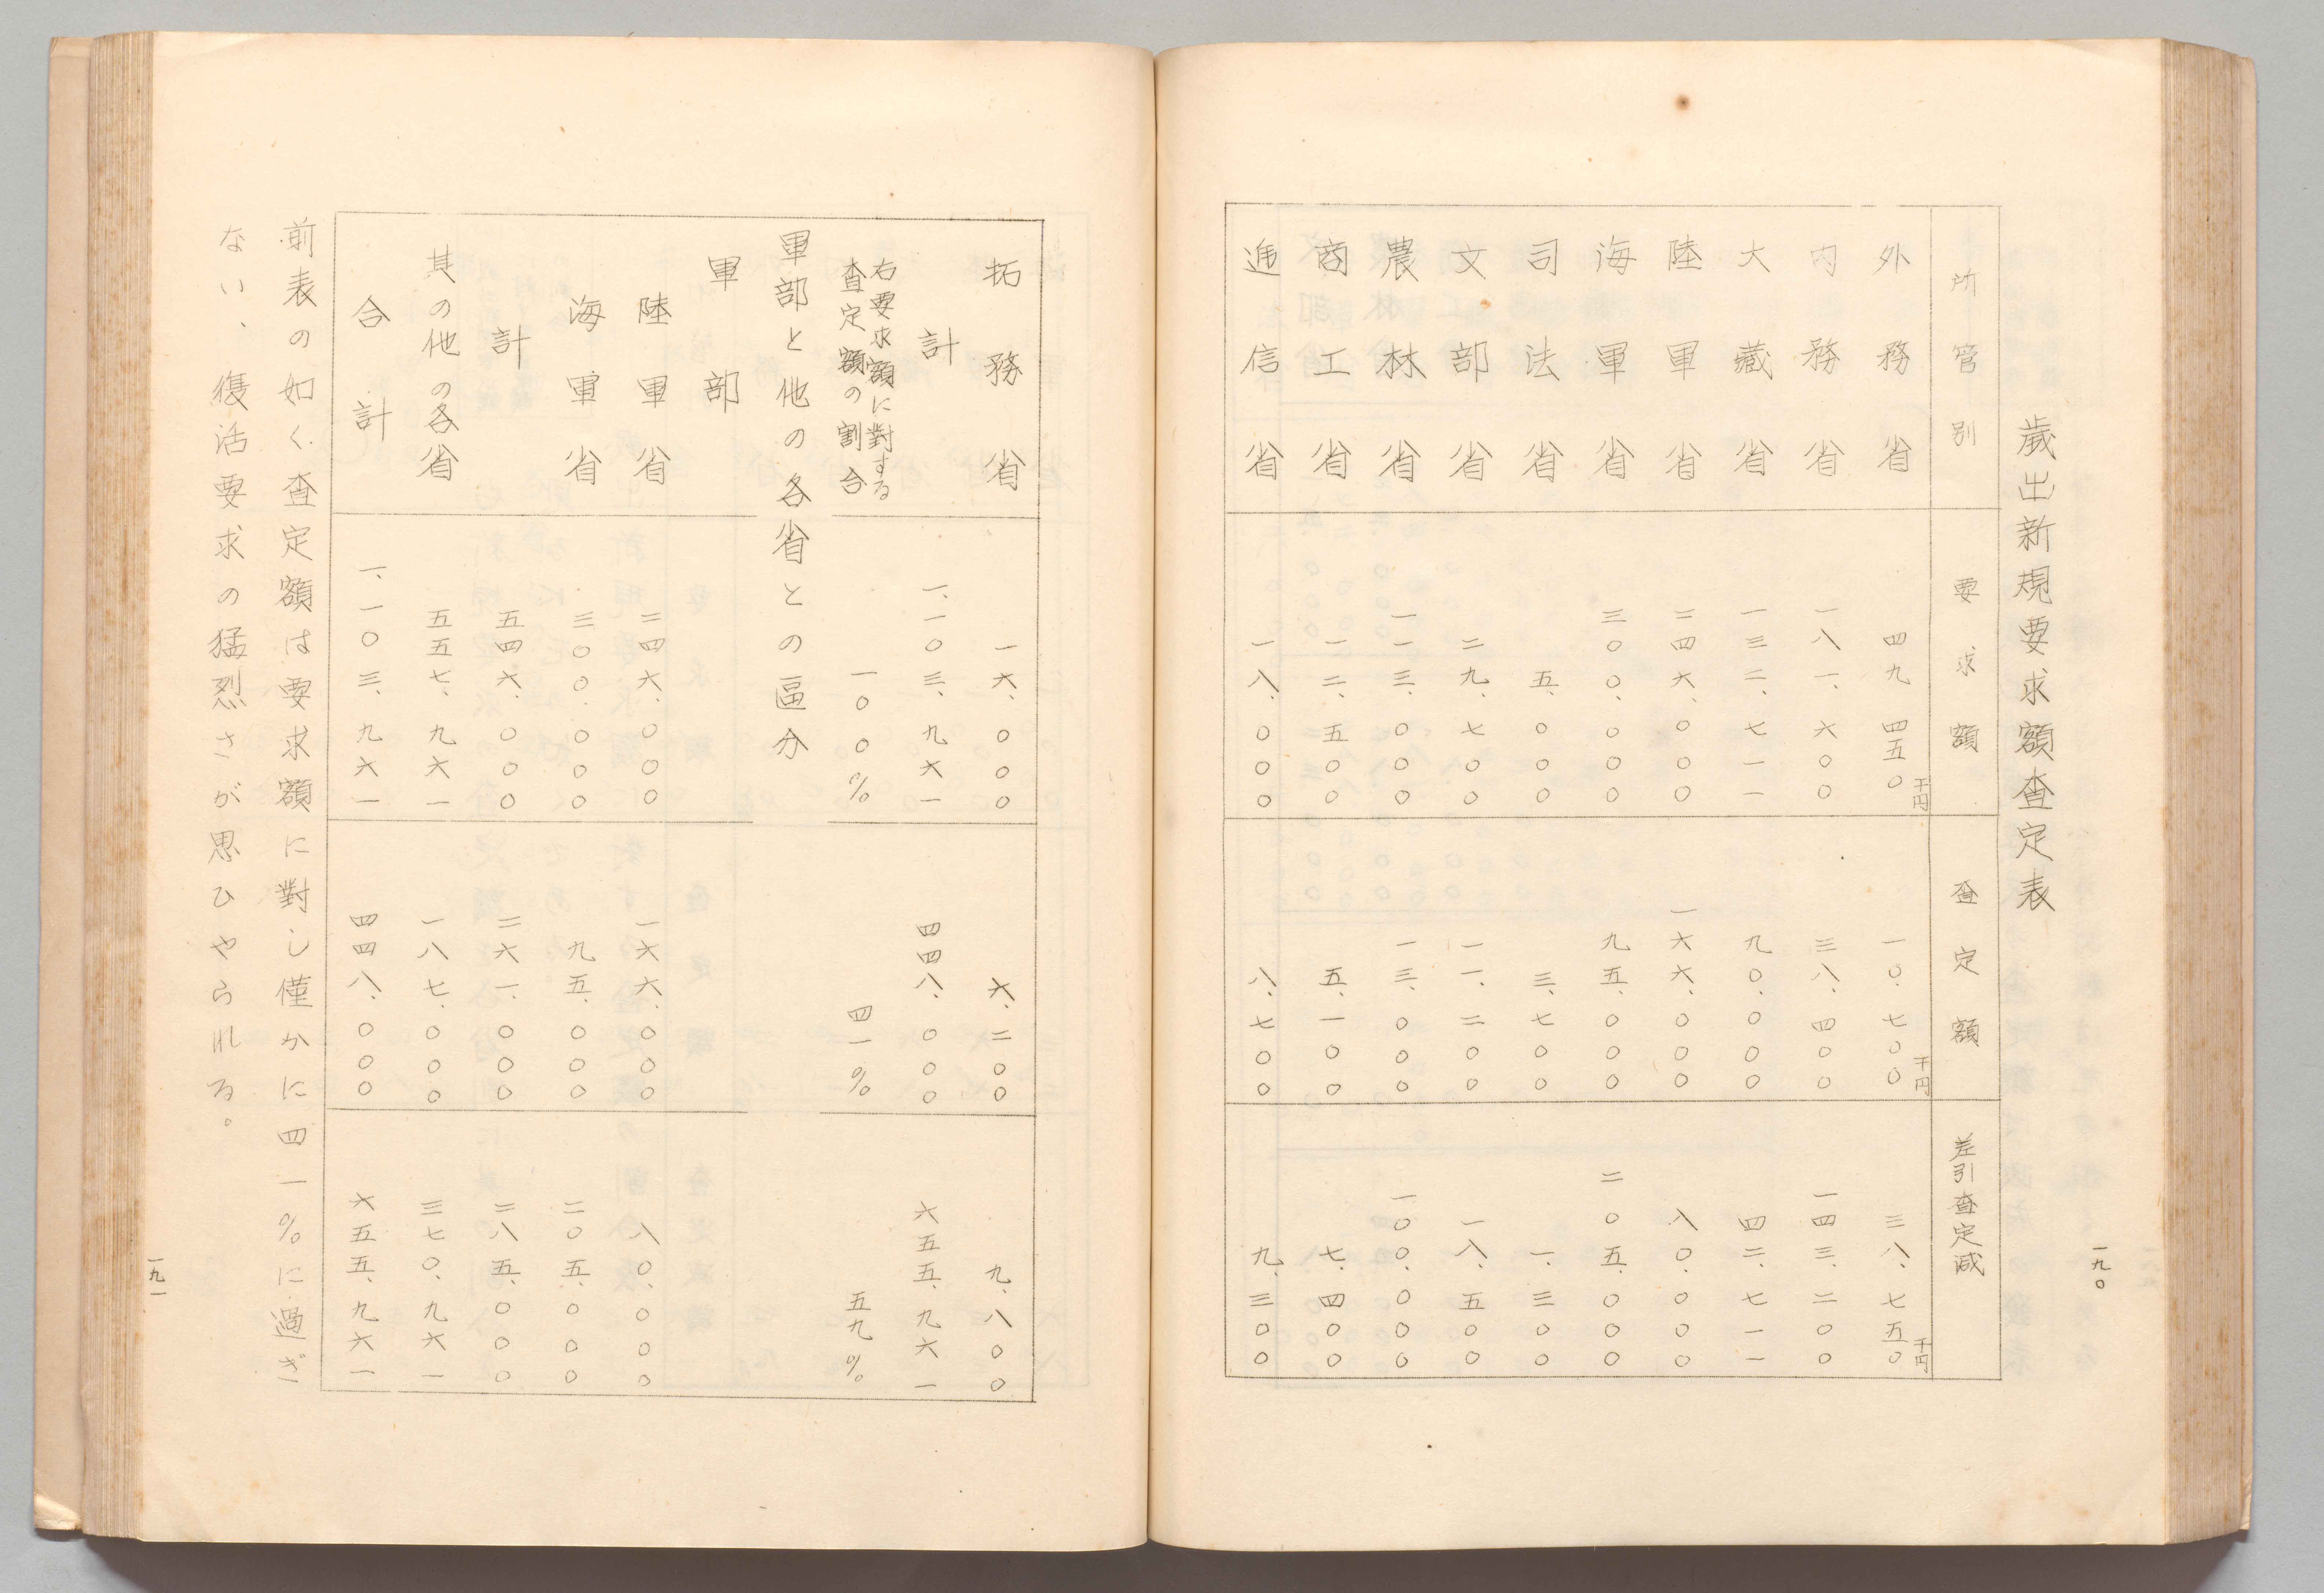 一九〇
歳出新規要求額査定表
所管別 要求額 査定額 差引査定減
外務省 四九 四五〇千円 一〇、七〇〇千円 三八、七五〇千円
内務省 一八一、六〇〇 三八、四〇〇 一四三、二〇〇
大藏省 一三二、七一一 九〇、〇〇〇 四二、七一一
陸軍省 二四六、〇〇〇 一六六、〇〇〇 八〇、〇〇〇
海軍省 三〇〇、〇〇〇 九五、〇〇〇 二〇五、〇〇〇
司法省 五、〇〇〇 三、七〇〇 一、三〇〇
文部省 二九、七〇〇 一一、二〇〇 一八、五〇〇
農林省 一一三、〇〇〇 一三、〇〇〇 一〇〇、〇〇〇
商工省 一二、五〇〇 五、一〇〇 七、四〇〇
逓信省 一八、〇〇〇 八、七〇〇 九、三〇〇
拓務省 一六、〇〇〇 六、二〇〇 九、八〇〇
計 一、一〇三、九六一 四四八、〇〇〇 六五五、九六一
右要求額に對する
査定額の割合 一〇〇% 四一% 五九%
軍部と他の各省との區分
軍部
陸軍省 二四六、〇〇〇 一六六、〇〇〇 八〇、〇〇〇
海軍省 三〇〇、〇〇〇 九五、〇〇〇 二〇五、〇〇〇
計 五四六、〇〇〇 二六一、〇〇〇 二八五、〇〇〇
其の他の各省 五五七、九六一 一八七、〇〇〇 三七〇、九六一
合計 一、一〇三、九六一 四四八、〇〇〇 六五五、九六一
前表の如く査定額は要求額に對し僅かに四一%に過ぎ
ない、復活要求の猛烈さが思ひやられる。
一九一